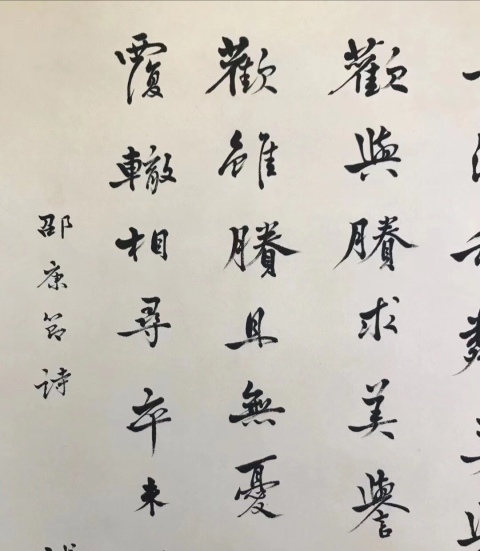 歡與賸求美譽
歡雖賸且無憂
覆轍相尋卒未
邵康節詩